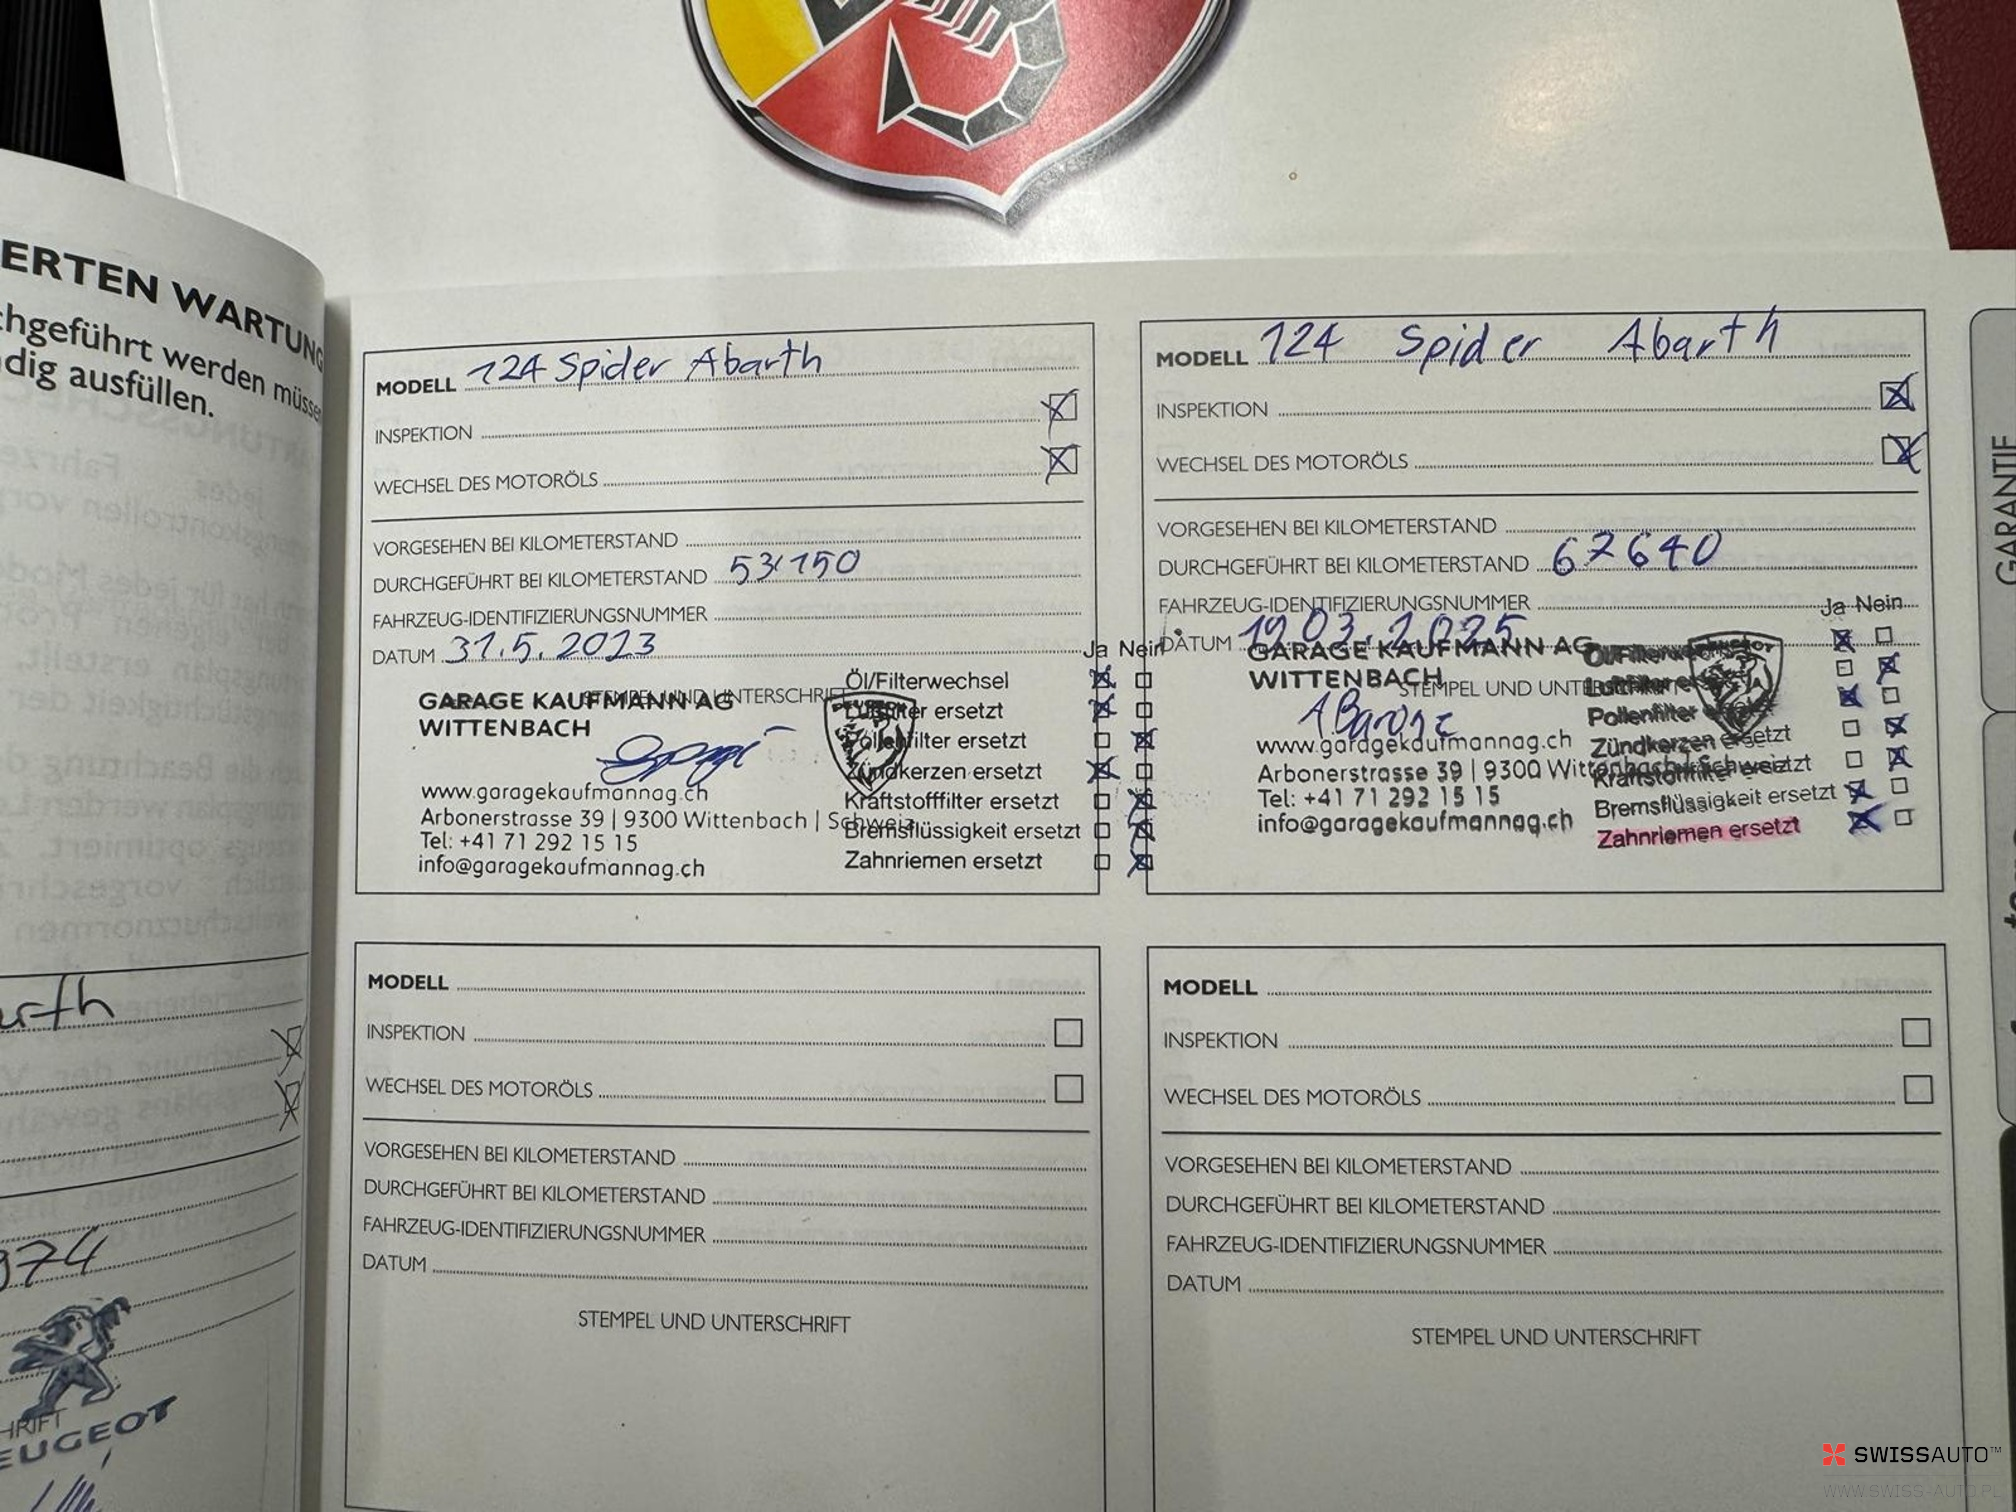 ERTEN WARTUNG
chgeführt werden müssen
dig ausfüllen.
arth
974
HRIFT
EUGEOT
MODELL 124 Spider Abarth
INSPEKTION
WECHSEL DES MOTORÖLS
VORGESEHEN BEI KILOMETERSTAND
DURCHGEFÜHRT BEI KILOMETERSTAND 53'150
FAHRZEUG-IDENTIFIZIERUNGSNUMMER
DATUM 31.5.2023
STEMPEL UND UNTERSCHRIFT
GARAGE KAUFMANN AG
WITTENBACH
www.garagekaufmannag.ch
Arbonerstrasse 39 | 9300 Wittenbach | Schweiz
Tel: +41 71 292 15 15
info@garagekaufmannag.ch
Ja Nein
Öl/Filterwechsel
Luftfilter ersetzt
Pollenfilter ersetzt
Zündkerzen ersetzt
Kraftstofffilter ersetzt
Bremsflüssigkeit ersetzt
Zahnriemen ersetzt
MODELL 124 Spider Abarth
INSPEKTION
WECHSEL DES MOTORÖLS
VORGESEHEN BEI KILOMETERSTAND
DURCHGEFÜHRT BEI KILOMETERSTAND 67640
FAHRZEUG-IDENTIFIZIERUNGSNUMMER
DATUM 19.03.2025
STEMPEL UND UNTERSCHRIFT
GARAGE KAUFMANN AG
WITTENBACH
www.garagekaufmannag.ch
Arbonerstrasse 39 | 9300 Wittenbach | Schweiz
Tel: +41 71 292 15 15
info@garagekaufmannag.ch
Ja Nein
Öl/Filterwechsel
Luftfilter ersetzt
Pollenfilter ersetzt
Zündkerzen ersetzt
Kraftstofffilter ersetzt
Bremsflüssigkeit ersetzt
Zahnriemen ersetzt
MODELL
INSPEKTION
WECHSEL DES MOTORÖLS
VORGESEHEN BEI KILOMETERSTAND
DURCHGEFÜHRT BEI KILOMETERSTAND
FAHRZEUG-IDENTIFIZIERUNGSNUMMER
DATUM
STEMPEL UND UNTERSCHRIFT
MODELL
INSPEKTION
WECHSEL DES MOTORÖLS
VORGESEHEN BEI KILOMETERSTAND
DURCHGEFÜHRT BEI KILOMETERSTAND
FAHRZEUG-IDENTIFIZIERUNGSNUMMER
DATUM
STEMPEL UND UNTERSCHRIFT
GARANTIE
SWISSAUTO™
WWW.SWISS-AUTO.PL